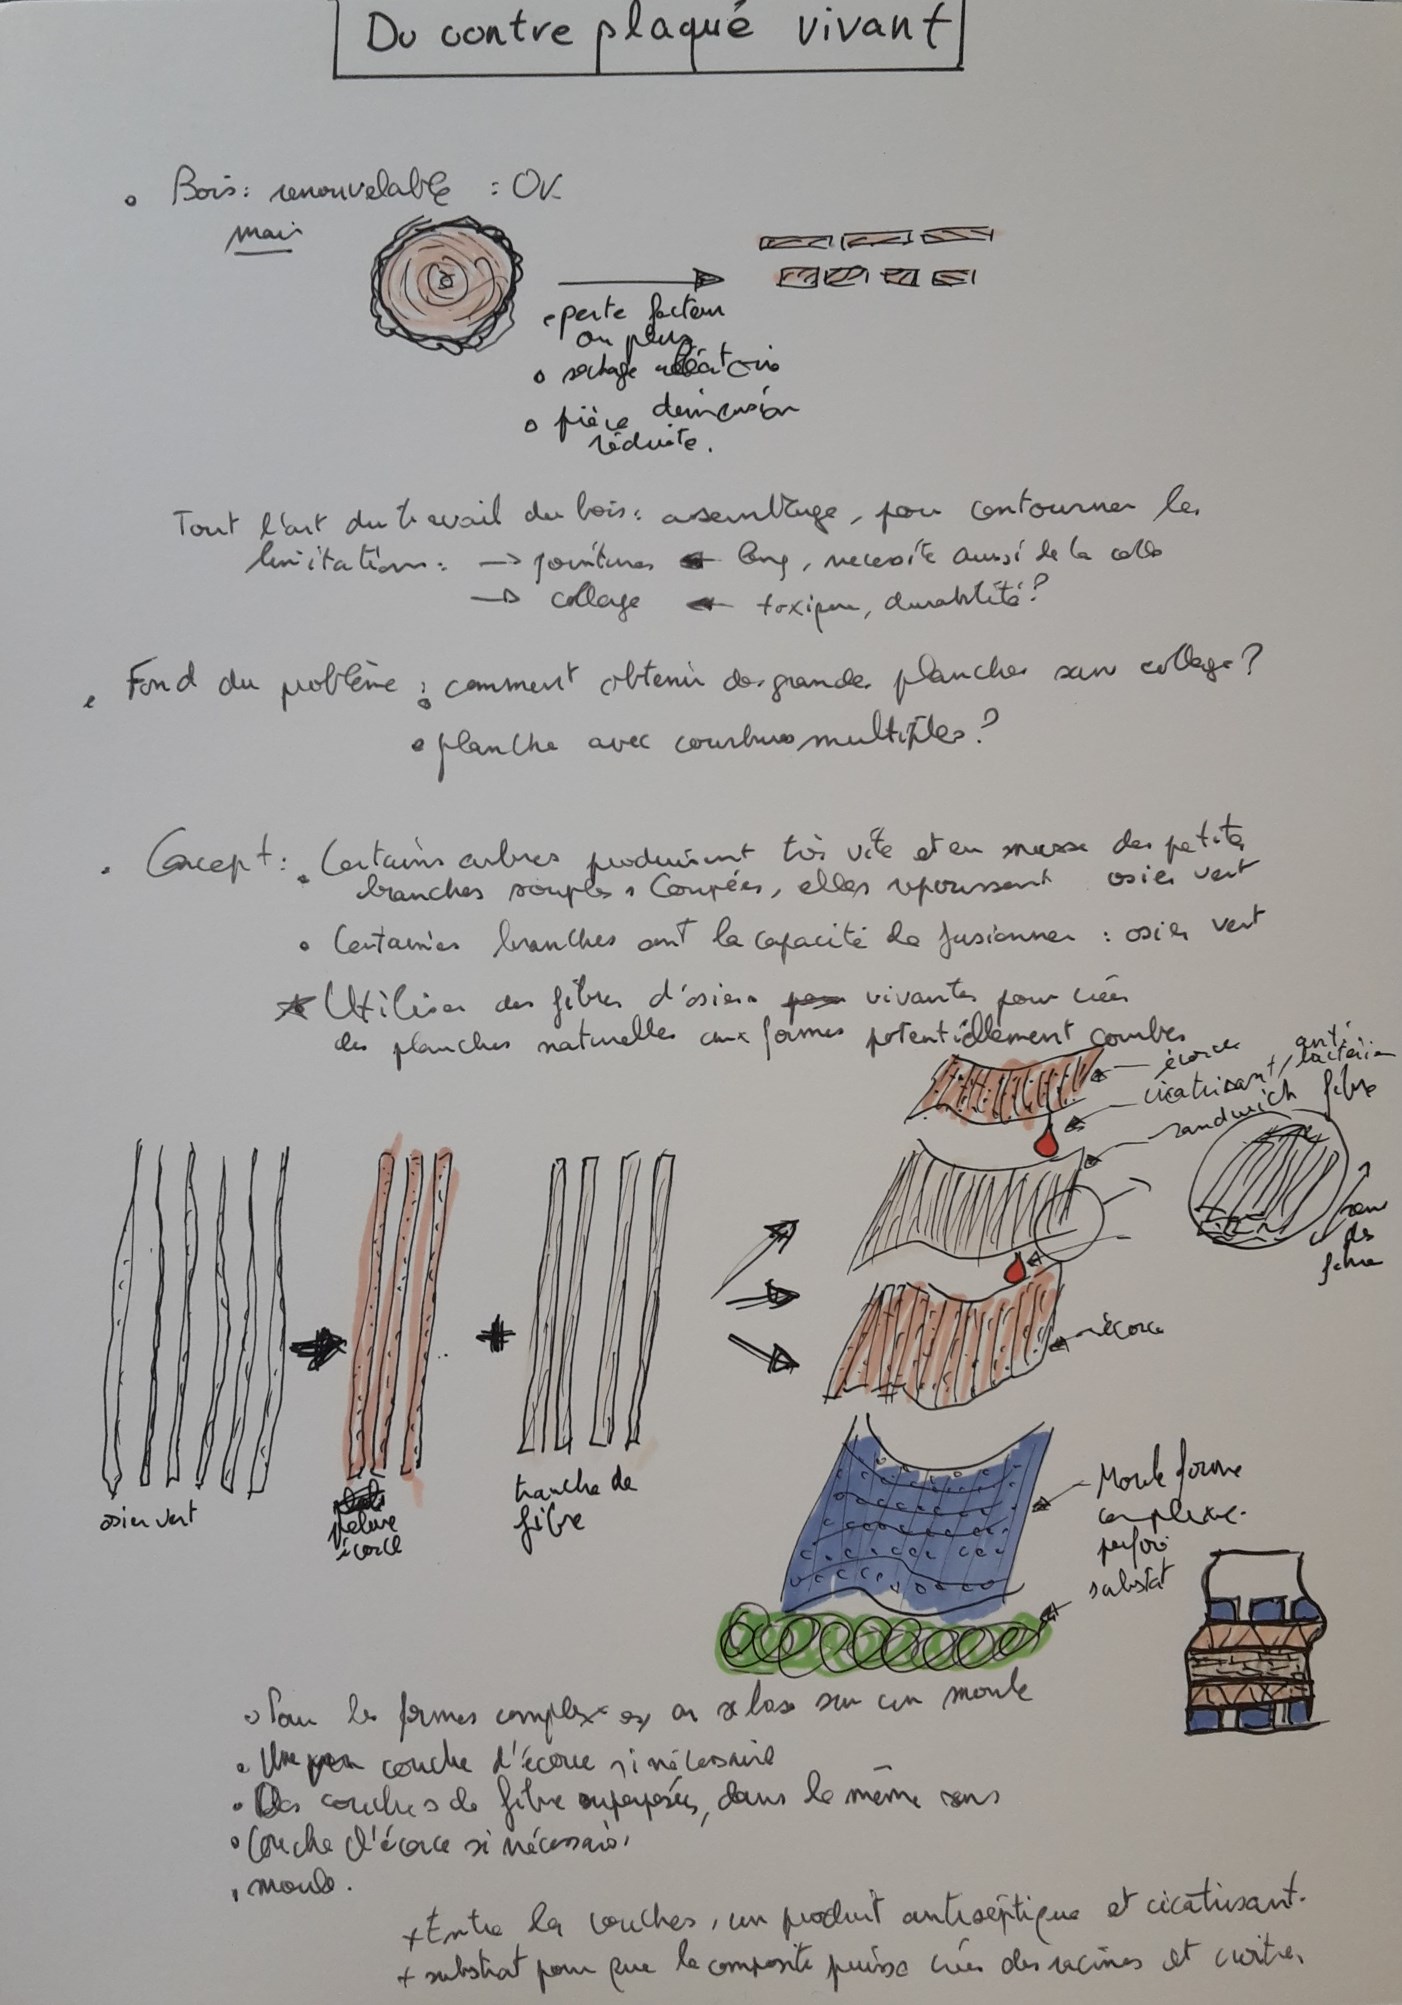 Du contre plaqué vivant
Bois: renouvelable : OK
mais
perte facteur
ou plus
séchage aléatoire
pièce dimension
réduite.
Tout l'art du travail du bois: assemblage, pour contourner les
limitations: → jointures ← long, necesite aussi de la colle
→ collage ← toxique, durabilité?
Fond du problème : comment obtenir des grandes planches sans collage?
planche avec courbures multiples?
Concept: Certains arbres produisent très vite et en masse des petites
branches souples. Coupées, elles repoussent osier vert
Certaines branches ont la capacité de fusionner : osier vert
Utiliser des fibres d'osier vivantes pour créer
des planches naturelles aux formes potentiellement courbes
écorce
cicatrisant/anti bactérien
sandwich fibre
sens
des
fibre
écorce
osier vert
pelure
écorce
tranche de
fibre
Moule forme
complexe
perforé
substrat
Pour les formes complexes, on se base sur un moule
Une couche d'écorce si nécessaire
Des couches de fibre superposées, dans le même sens
Couche d'écorce si nécessaire
moule.
+ Entre les couches, un produit antiséptique et cicatrisant.
+ substrat pour que le composite puisse créer des racines et croitre.